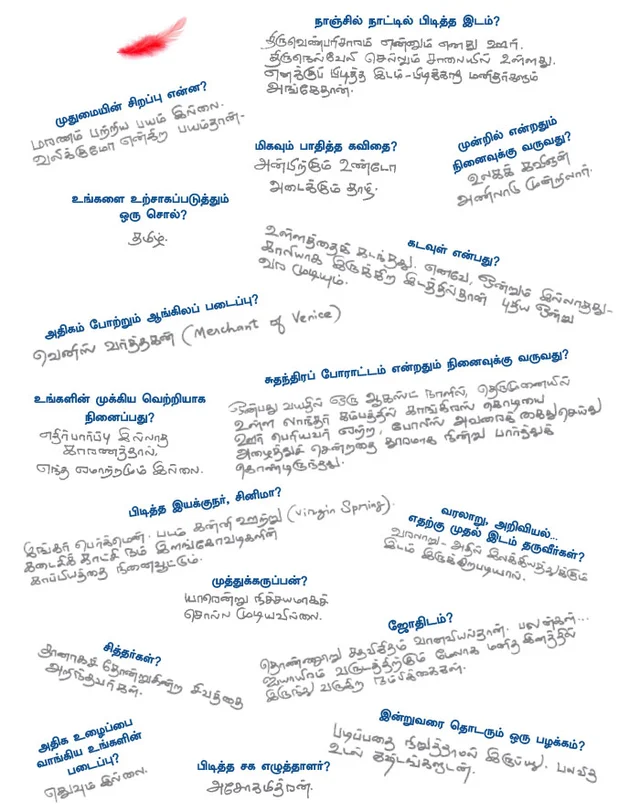 நாஞ்சில் நாட்டில் பிடித்த இடம்?
திருவெண்பரிசாரம் என்னும் எனது ஊர்.
திருநெல்வேலி செல்லும் சாலையில் உள்ளது.
எனக்குப் பிடித்த இடம் - பிடிக்காத மனிதர்களும்
அங்கேதான்.
முதுமையின் சிறப்பு என்ன?
மரணம் பற்றிய பயம் இல்லை.
வலிக்குமோ என்கிற பயம்தான்-
மிகவும் பாதித்த கவிதை?
அன்பிற்கும் உண்டோ
அடைக்கும் தாழ்.
முன்றில் என்றதும்
நினைவுக்கு வருவது?
உலகக் கவிஞன்
அணிலாடு முன்றிலார்.
உங்களை உற்சாகப்படுத்தும்
ஒரு சொல்?
தமிழ்.
கடவுள் என்பது?
உள்ளத்தைக் கடந்தது. எனவே, ஒன்றும் இல்லாதது-
காலியாக இருக்கிற இடத்தில்தான் புதிய ஒன்று
வர முடியும்.
அதிகம் போற்றும் ஆங்கிலப் படைப்பு?
வெனிஸ் வர்த்தகன் (Merchant of Venice)
சுதந்திரப் போராட்டம் என்றதும் நினைவுக்கு வருவது?
ஒன்பது வயதில் ஒரு ஆகஸ்ட் நாளில், தெருமுனையில்
உள்ள லாந்தர் கம்பத்தில் காங்கிரஸ் கொடியை
ஊர் பெரியவர் ஏற்ற, போலீஸ் அவரைக் கைதுசெய்து
அழைத்துச் சென்றதை தூரமாக நின்று பார்த்துக்
கொண்டிருந்தது.
உங்களின் முக்கிய வெற்றியாக
நினைப்பது?
எதிர்பார்ப்பு இல்லாத
காரணத்தால்,
எந்த ஏமாற்றமும் இல்லை.
பிடித்த இயக்குநர், சினிமா?
இங்கர் பெர்க்மென். படம் கன்னி ஊற்று (Virgin Spring).
கடைசிக் காட்சி நம் இளங்கோவடிகளின்
காப்பியத்தை நினைவூட்டும்.
வரலாறு, அறிவியல்...
எதற்கு முதல் இடம் தருவீர்கள்?
வரலாறு - அதில் இலக்கியத்துக்கும்
இடம் இருக்கிறபடியால்.
முத்துக்கருப்பன்?
யாரென்று நிச்சயமாகச்
சொல்ல முடியவில்லை.
ஜோதிடம்?
தொண்ணூறு சதவிகிதம் வானவியல்தான். பலன்கள்...
ஆயிரம் வருடத்திற்கும் மேலாக மனித இனத்தில்
இருந்து வருகிற நம்பிக்கைகள்.
சித்தர்கள்?
தானாகத் தோன்றுகின்ற சிவத்தை
அறிந்தவர்கள்.
இன்றுவரை தொடரும் ஒரு பழக்கம்?
படிப்பதை நிறுத்தாமல் இருப்பது. பலவித
உடல் கஷ்டங்களுடன்.
அதிக உழைப்பை
வாங்கிய உங்களின்
படைப்பு?
எதுவும் இல்லை.
பிடித்த சக எழுத்தாளர்?
அசோகமித்ரன்.